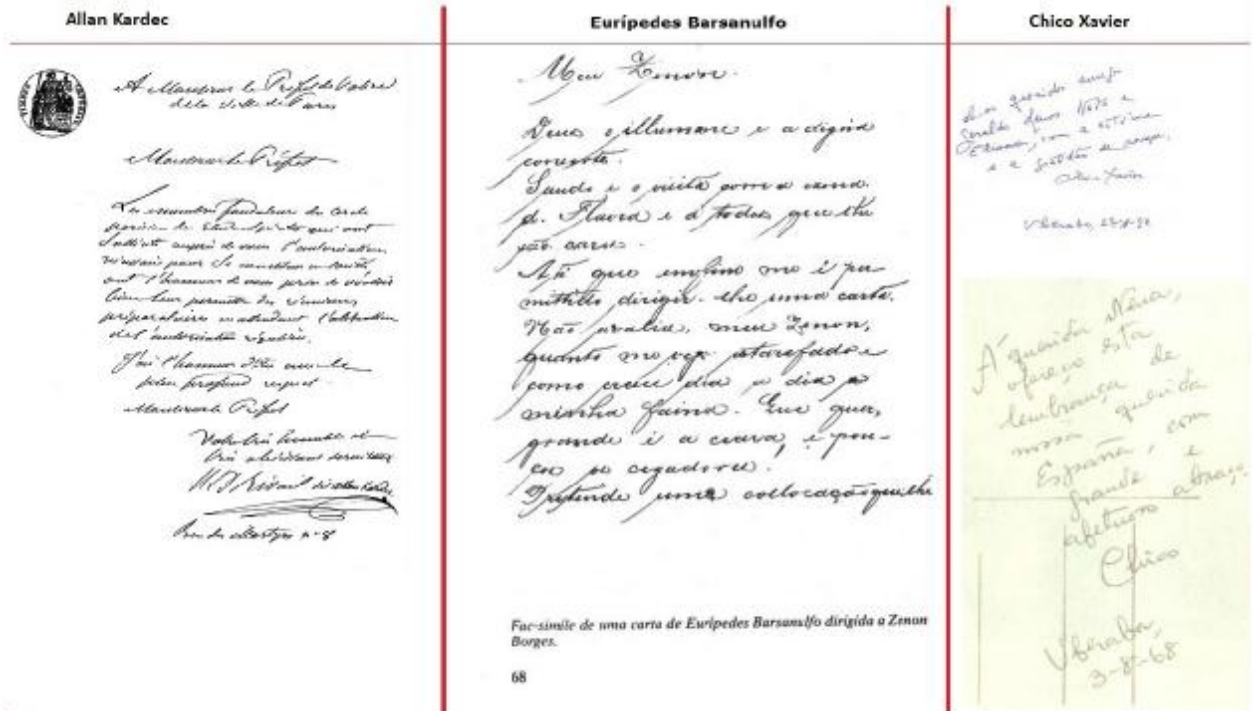 Allan Kardec
Eurípedes Barsanulfo
Chico Xavier
TIMBRE IMPÉRIAL
A Monsieur le Préfet de Police
de la Ville de Paris
Monsieur le Préfet
Les membres fondateurs du Cercle
parisien de qui ont
sollicité auprès de vous l'autorisation
nécessaire pour se constituer en Société,
ont l'honneur de vous prier de vouloir
bien leur permettre des réunions
préparatoires en attendant l'obtention
de l'autorisation régulière.
J'ai l'honneur d'être avec le
plus profond respect
Monsieur le Préfet
Votre très humble et
très obéissant serviteur
H. D. Rivail dit Allan Kardec
Rue des Martyrs n° 8
Meu Zenon.
Deus o illumine e a digna
consorte.
Saudo e o visito com a exma.
d. Flavia e a todos que lhe
são caros.
Até que emfim me é per-
mittido dirigir-lhe uma carta.
Não avalia, meu Zenon,
quanto me vejo atarefado e
como cresce dia a dia a
minha faina. Que quer,
grande é a ceara, e pou-
cos os cegadores.
Pretende uma collocação que lhe
Fac-simile de uma carta de Eurípedes Barsanulfo dirigida a Zenon
Borges.
68
Aos querido amigo
Geraldo Lemos Neto e
Eliana, com a estima
e a gratidão de sempre,
Chico Xavier
Uberaba,
À querida Nena,
ofereço esta
lembrança de
nossa querida
España, com
grande e
afetuoso abraço
Chico
Uberaba,
3-8-68